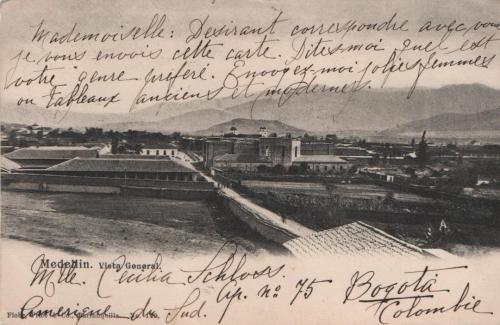 Mademoiselle: Desirant correspondre avec vous
je vous envois cette carte. Dites-moi quel est
votre genre preféré. Envoyez-moi jolies femmes
ou Tableaux anciens et modernes.
Medellin. Vista General.
Mlle. Cecilia Schloss
Ap. nº 75 Bogotá
Amerique du Sud. Colombie
& Co., Barranquilla